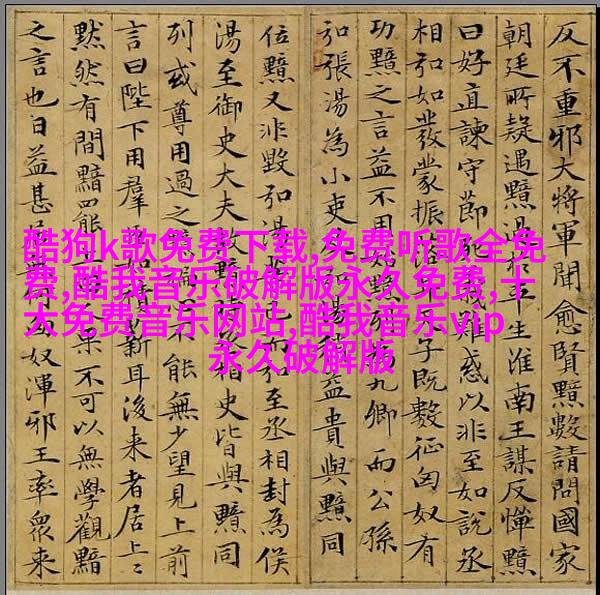 反不重邪大將軍聞愈賢黯數請問國家
朝廷所疑遇黯過於平生淮南王謀反憚黯
曰好直諫守節死義難惑以非至如說丞
相弘如發蒙振子既數征匈奴有
功黯之言益不用始黯九卿而公孫
弘張湯為小吏弘湯益貴與黯同
位黯又非毀弘湯已弘至丞相封為侯
湯至御史大夫故黯時丞相史皆與黯同
列或尊用過之黯褊不能無少望見上前
言曰陛下用羣積薪耳後來者居上〻
默然有間黯罷上果不可以無學觀黯
之言也日益甚居無匈奴渾邪王率眾來
酷狗k歌免费下载,免费听歌全免
费,酷我音乐破解版永久免费,十
大免费音乐网站,酷我音乐vip
永久破解版